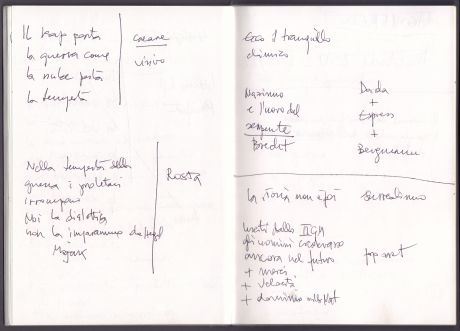 Il Kap porta
la guerra come
la nube porta
la tempesta
Creare
visivo
Nella tempesta della
guerra i proletari
irrompono
Noi la dialettica
non la impariamo da Hegel
Majak
Rosta
Ecco il tranquillo
dimico
Nazismo
e l'uovo del
serpente
Brecht
Dada
+
Espress
+
Bergman
la storia non è più
surrealismo
usciti dalla IIGM
gli uomini credevano
ancora nel futuro
+ merci
+ velocità
+ dominio sulla Nat
pop art